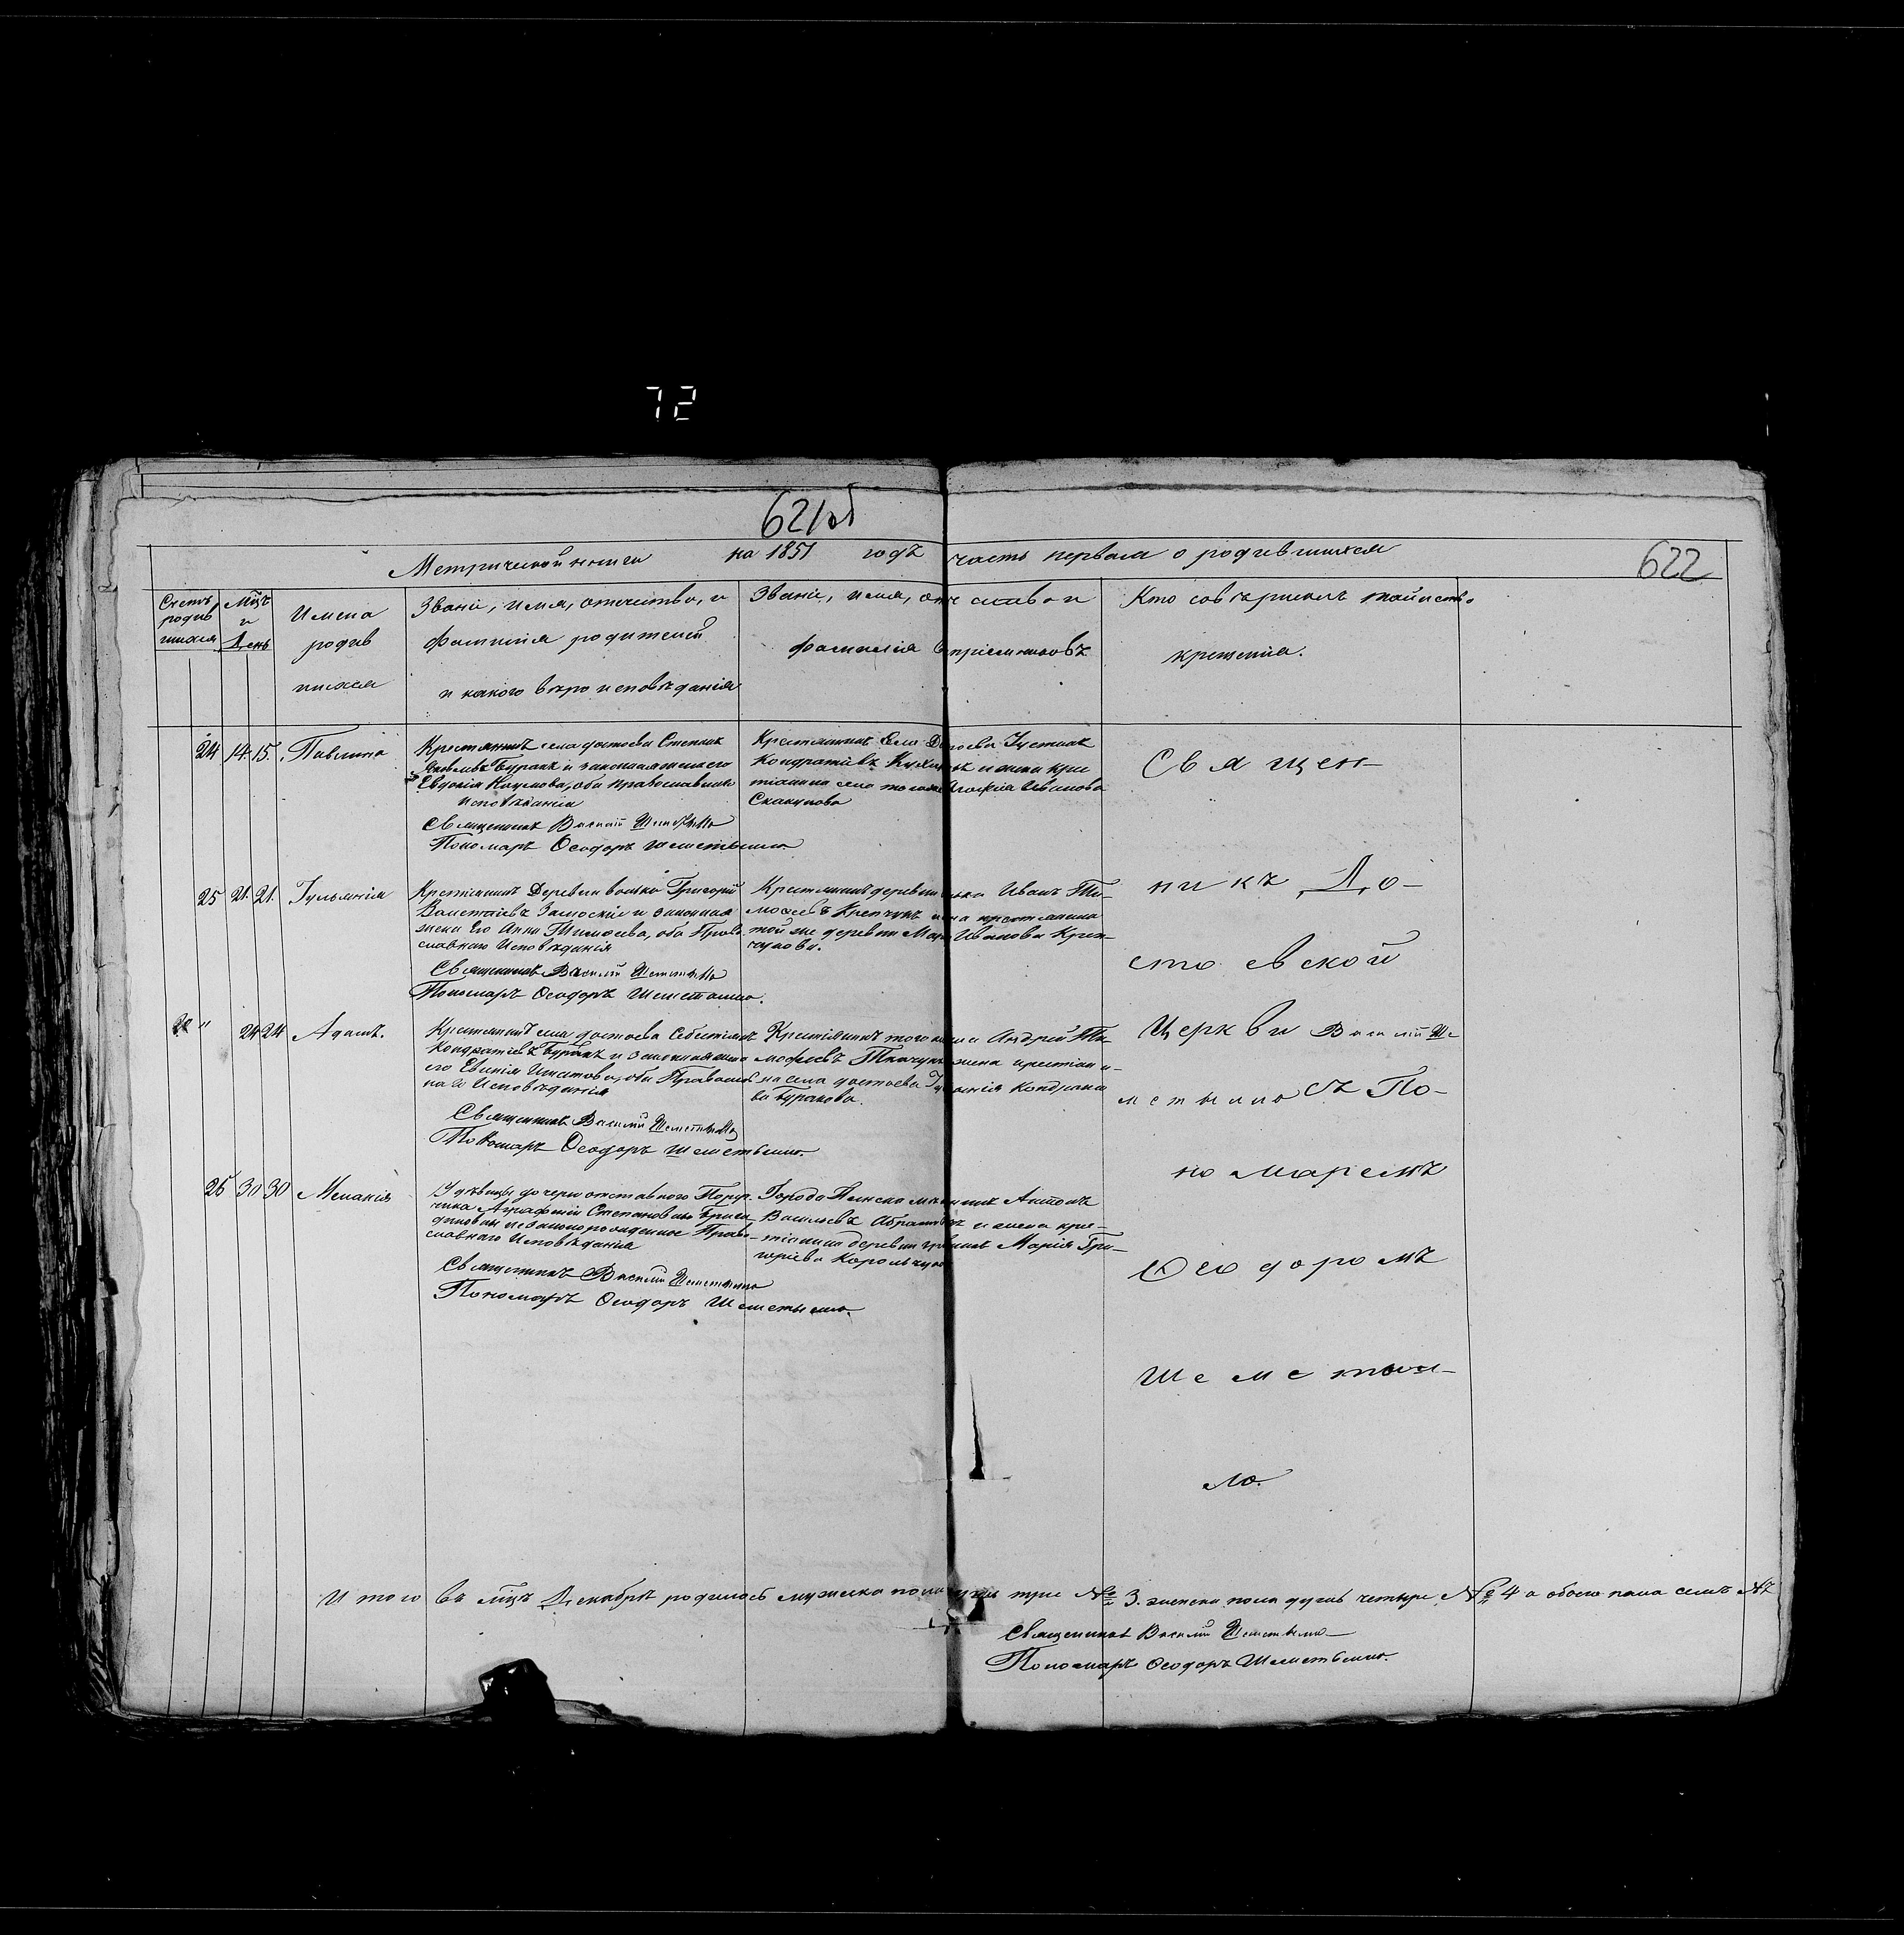 72
621об
622
Метрической книги на 1851 годъ часть первая о родившихся
Счетъ родив шихся
Мцъ и День
Имена родив шихся
Званіе, имя, отчество, и фамилія родителей и какого вѣро исповѣданія
Званіе, имя, отчество и фамилія воспріемниковъ
Кто совершилъ таинство крещенія.
24 14. 15. Павлина
Крестянинъ села Достоева Степанъ
Яковлевъ Буракъ и законная жена его
Евдокія Наумова, оба православнаго
исповѣданія
Священникъ Василій Шеметылло
Пономаръ Ѳеодоръ Шеметылло
Крестянинъ села Достоева Іустинъ
Кондратіевъ и жена крес
тянина села того же Агафія Иванова
Скакунова
25 21. 21. Іульянія
Крестянинъ Деревни Вольки Григорій
и законная
жена Его Анна Тимоѳеева, оба Право
славнаго Исповѣданія
Священникъ Василій Шеметылло
Пономаръ Ѳеодоръ Шеметылло.
Крестянинъ деревни Вольки Иванъ Ти-
моѳеевъ Крепчукъ и жена крестянина
той же деревни Марія Иванова Креп-
чукова.
22 " 24 24 Адамъ.
Крестянинъ села Достоева Себестіянъ
Кондратіевъ Буракъ и законная жена
его Евгенія Игнатова, оба Православ
наго Исповѣданія
Священникъ Василій Шеметылло
Пономаръ Ѳеодоръ Шеметылло.
Крестіянинъ того села Андрей Ти-
мофеевъ Ткачукъ жена крестіани-
на села Достоева Іуліанія Кондрато
ва Буракова.
26 30 30 Меланія
У дѣвицы дочери отставного Пору-
чика Аграфини Степановны
незаконорожденное Право-
славнаго Исповѣданія
Священникъ Василій Шеметылло
Пономаръ Ѳеодоръ Шеметылло.
Города Пинска мѣщанинъ Антонъ
Васильевъ Абрамовъ и жена крес-
тянина деревни Марія Гри-
горіева
Священ-
никъ До-
стоевской
Церкви Василій Ше
метылло съ По-
номаремъ
Ѳеодоромъ
Шеметыл-
ло.
Итого въ мцѣ Декабрѣ родилось мужска пола душъ три № 3. женска пола душъ четыре № 4 а обоего пола семъ № 7
Священникъ Василій Шеметылло
Пономаръ Ѳеодоръ Шеметылло.